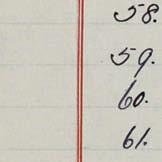 58.
59.
60.
61.